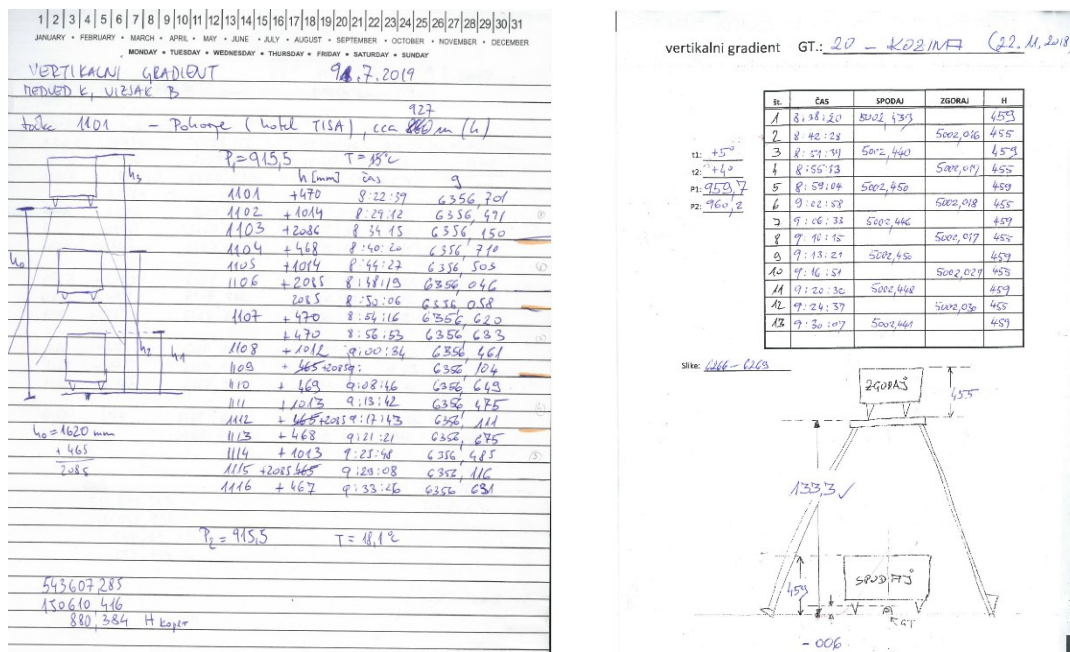 1 2 3 4 5 6 7 8 9 10 11 12 13 14 15 16 17 18 19 20 21 22 23 24 25 26 27 28 29 30 31
JANUARY • FEBRUARY • MARCH • APRIL • MAY • JUNE • JULY • AUGUST • SEPTEMBER • OCTOBER • NOVEMBER • DECEMBER
MONDAY • TUESDAY • WEDNESDAY • THURSDAY • FRIDAY • SATURDAY • SUNDAY
VERTIKALNI GRADIENT .7.2019
MEDVED K, VIZJAK B
927
točka 1101 – Pohorje (hotel TISA), cca m (h)
P₁=915,5 T= 15°C
h [mm] čas g
1101 +470 8:22:39 6356,701
1102 +1014 8:29:12 6356,471
1103 +2086 8 34 15 6356,150
1104 +468 8:40:20 6356,710
1105 +1014 8:44:27 6356,503
1106 +2085 8:48:19 6356,046
2085 8:50:06 6356,058
1107 +470 8:54:16 6356,620
+470 8:56:53 6356,633
1108 +1012 9:00:34 6356,461
1109 + 465 +2085 9: 6356,104
1110 + 469 9:08:46 6356,649
1111 +1013 9:13:42 6356,475
1112 + 465 +2085 9:17:43 6356,111
1113 +468 9:21:21 6356,675
1114 +1013 9:25:48 6356,485
1115 +2085 465 9:29:08 6356,116
1116 +467 9:33:26 6356 681
h₃
h₀
h₂
h₁
h₀=1620 mm
+ 465
2085
P₂=915,5 T= 18,1°C
543607,285
150610,416
880,384 H Koper
vertikalni gradient GT.: 20 – KOZINA (22.11.2018)
št. ČAS SPODAJ ZGORAJ H
1 8:38:20 5002,439 459
2 8:42:28 5002,016 455
3 8:51:39 5002,440 459
4 8:55:13 5002,017 455
5 8:59:04 5002,450 459
6 9:02:58 5002,018 455
7 9:06:33 5002,446 459
8 9:10:15 5002,017 455
9 9:13:21 5002,450 459
10 9:16:51 5002,029 455
11 9:20:32 5002,448 459
12 9:24:37 5002,030 455
13 9:30:07 5002,441 459
t1: +5°
t2: +4°
P1: 959,7
P2: 960,2
Slike: 6266 – 6269
ZGORAJ
455
133,3 ✓
459
SPODAJ
GT
– 006